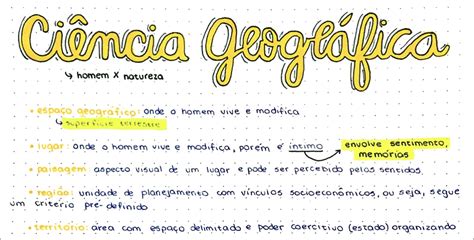 Ciência Geográfica
↳ homem x natureza
• espaço geográfico: onde o homem vive e modifica
↳ superfície terrestre
• lugar: onde o homem vive e modifica, porém é íntimo → envolve sentimento,
memórias
• paisagem aspecto visual de um lugar e pode ser percebido pelos sentidos
• região: unidade de planejamento com vínculos socioeconômicos, ou seja, segue
um critério pré-definido
• território: área com espaço delimitado e poder coercitivo (estado) organizando